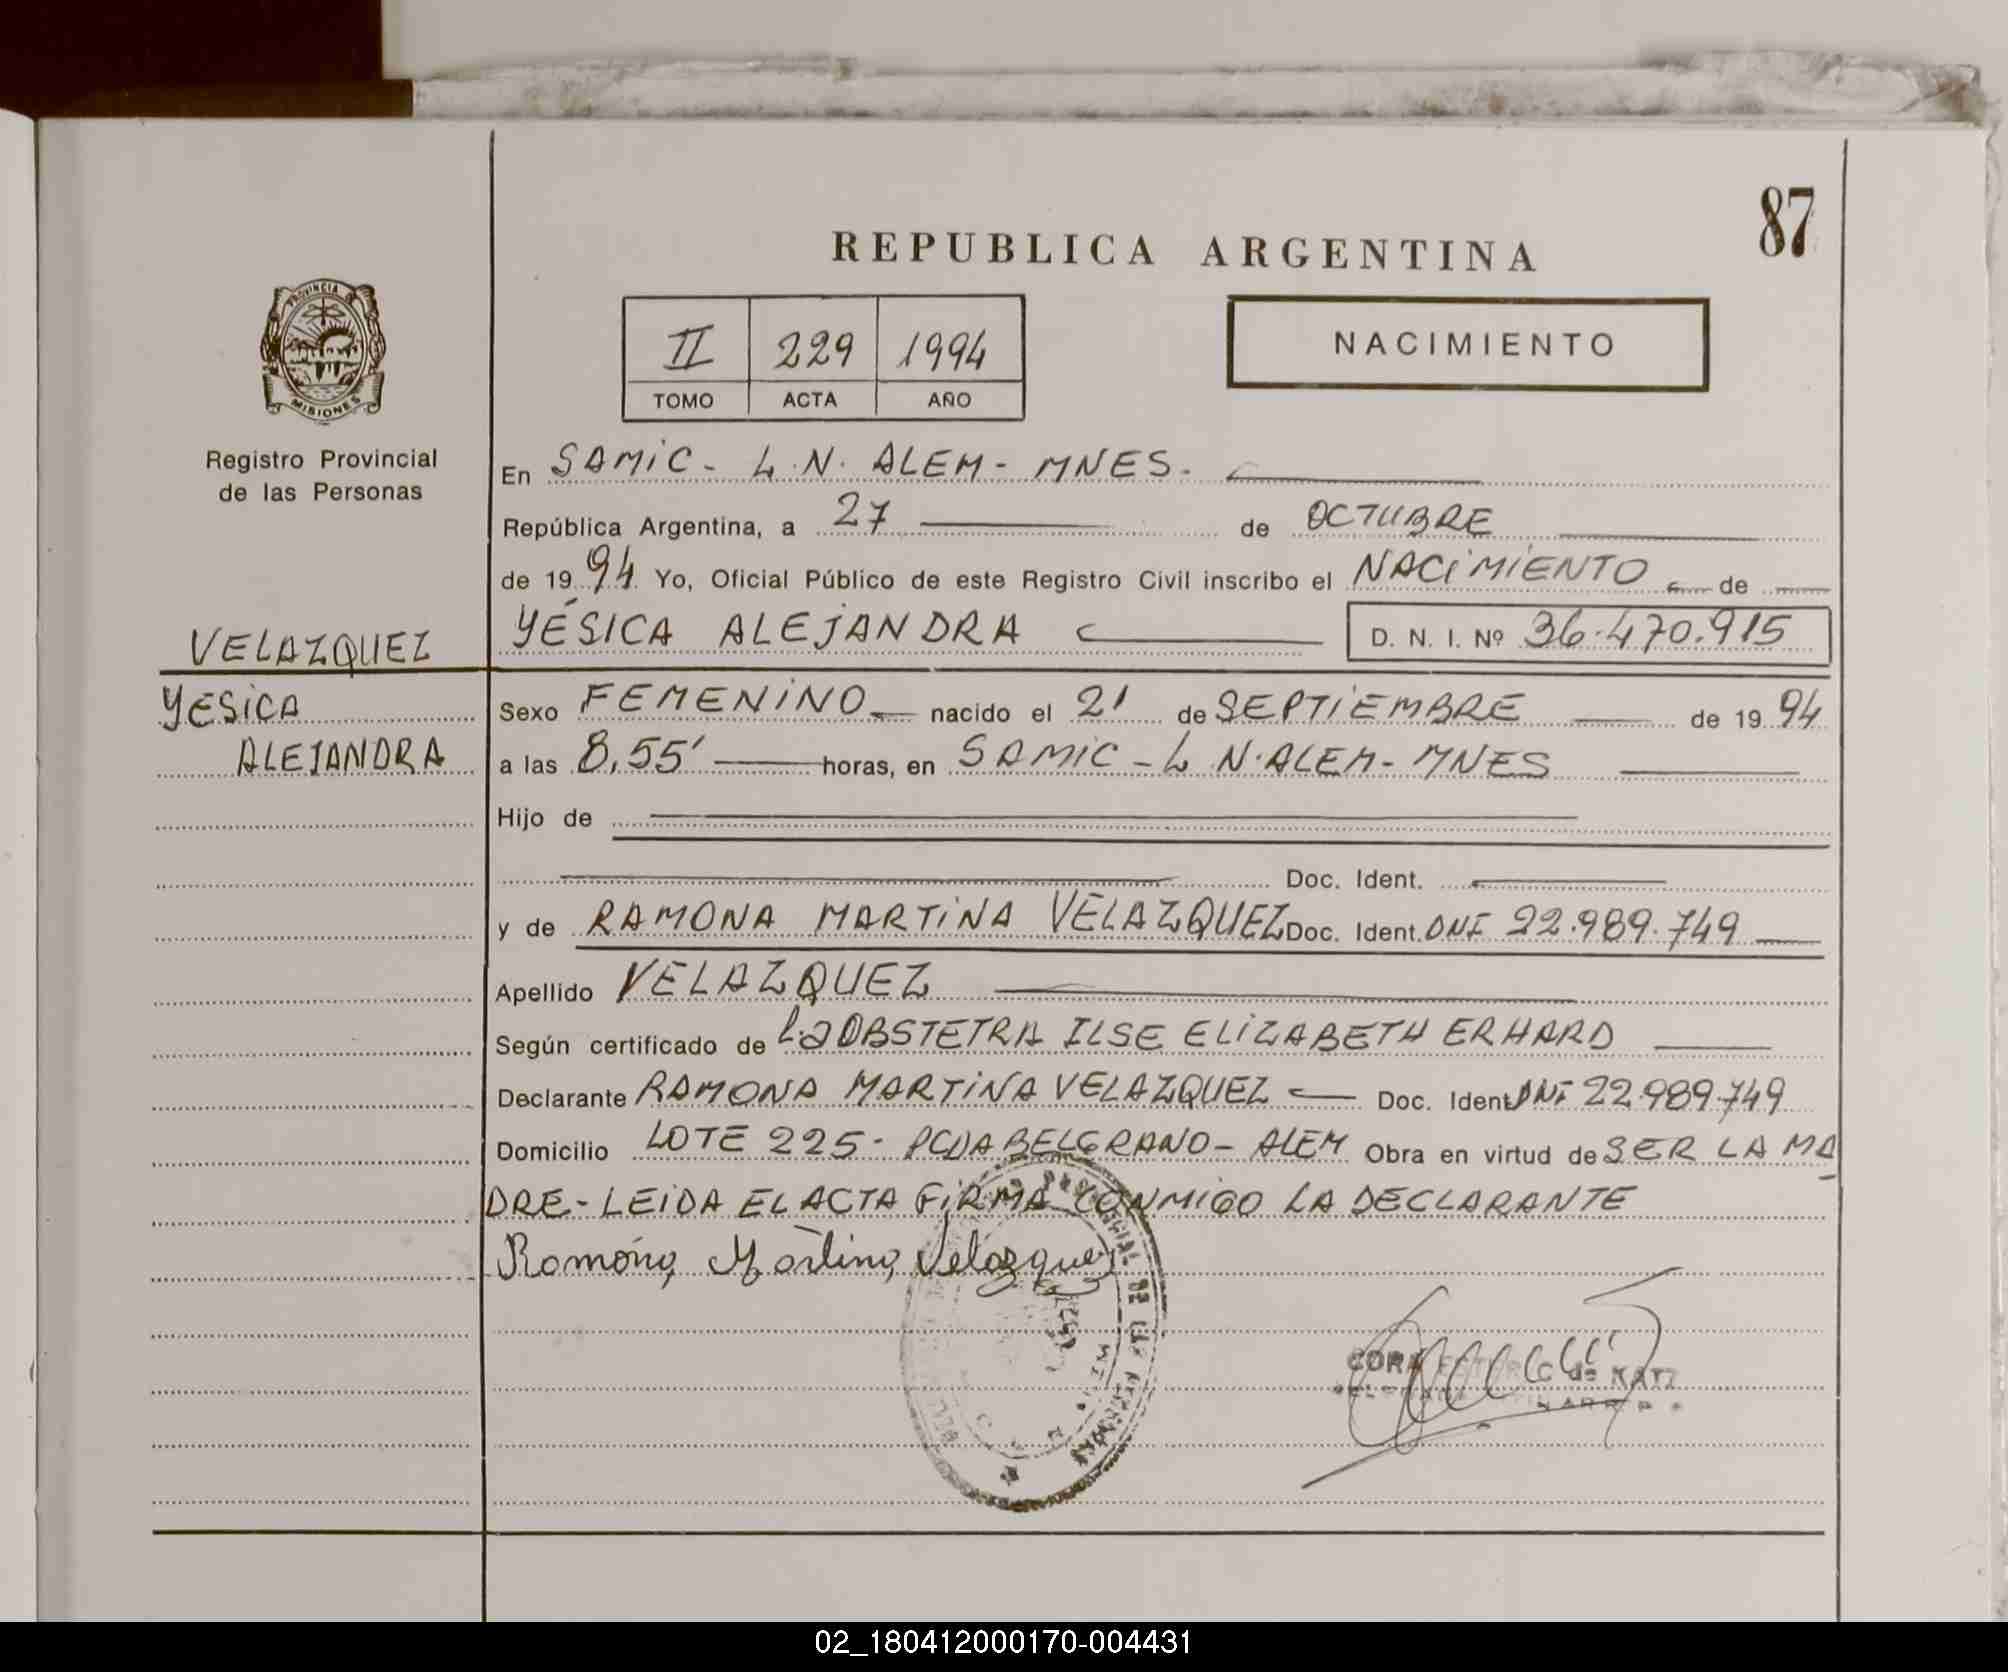 87
REPUBLICA ARGENTINA
PROVINCIA
MISIONES
Registro Provincial
de las Personas
II 229 1994
TOMO ACTA AÑO
NACIMIENTO
En SAMIC - L.N. ALEM - MNES.
República Argentina, a 27 de OCTUBRE
de 1994 Yo, Oficial Público de este Registro Civil inscribo el NACIMIENTO de
YÉSICA ALEJANDRA D. N. I. Nº 36.470.915
VELAZQUEZ
YESICA
ALEJANDRA
Sexo FEMENINO nacido el 21 de SEPTIEMBRE de 1994
a las 8,55' horas, en SAMIC - L N. ALEM - MNES
Hijo de
Doc. Ident.
y de RAMONA MARTINA VELAZQUEZ Doc. Ident. DNI 22.989.749
Apellido VELAZQUEZ
Según certificado de La OBSTETRA ILSE ELIZABETH ERHARD
Declarante RAMONA MARTINA VELAZQUEZ Doc. Ident DNI 22.989.749
Domicilio LOTE 225 - PCDA BELGRANO - ALEM Obra en virtud de SER LA MA
DRE - LEIDA EL ACTA FIRMA CONMIGO LA DECLARANTE
Ramona Martina Velazquez
de KATZ
02_180412000170-004431